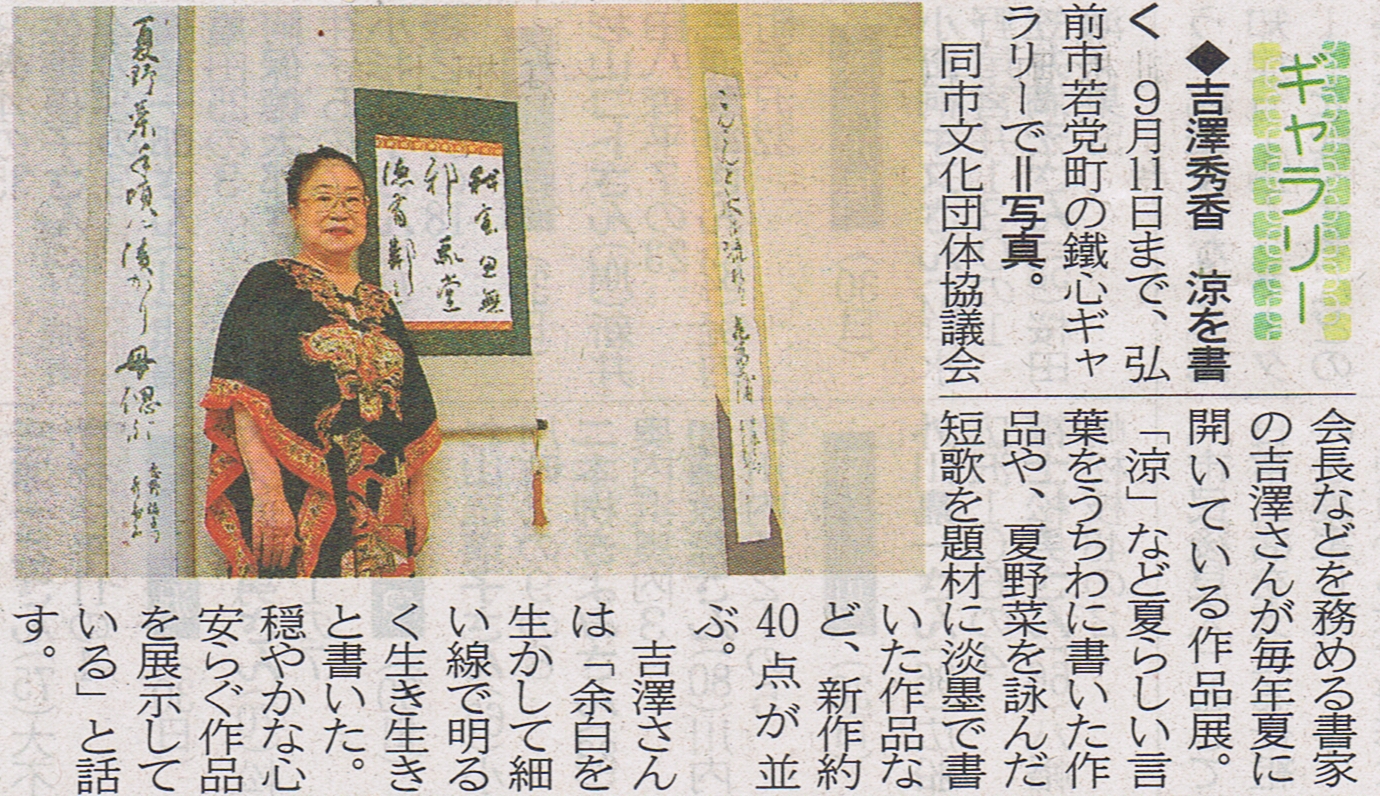 ギャラリー
◆吉澤秀香 涼を書
く 9月11日まで、弘
前市若党町の鐵心ギャ
ラリーで＝写真。
同市文化団体協議会
会長などを務める書家
の吉澤さんが毎年夏に
開いている作品展。
「涼」など夏らしい言
葉をうちわに書いた作
品や、夏野菜を詠んだ
短歌を題材に淡墨で書
いた作品な
ど、新作約
40点が並
ぶ。
吉澤さん
は「余白を
生かして細
い線で明る
く生き生き
と書いた。
穏やかな心
安らぐ作品
を展示して
いる」と話
す。
夏野菜手頃に漬かり母偲ぶ